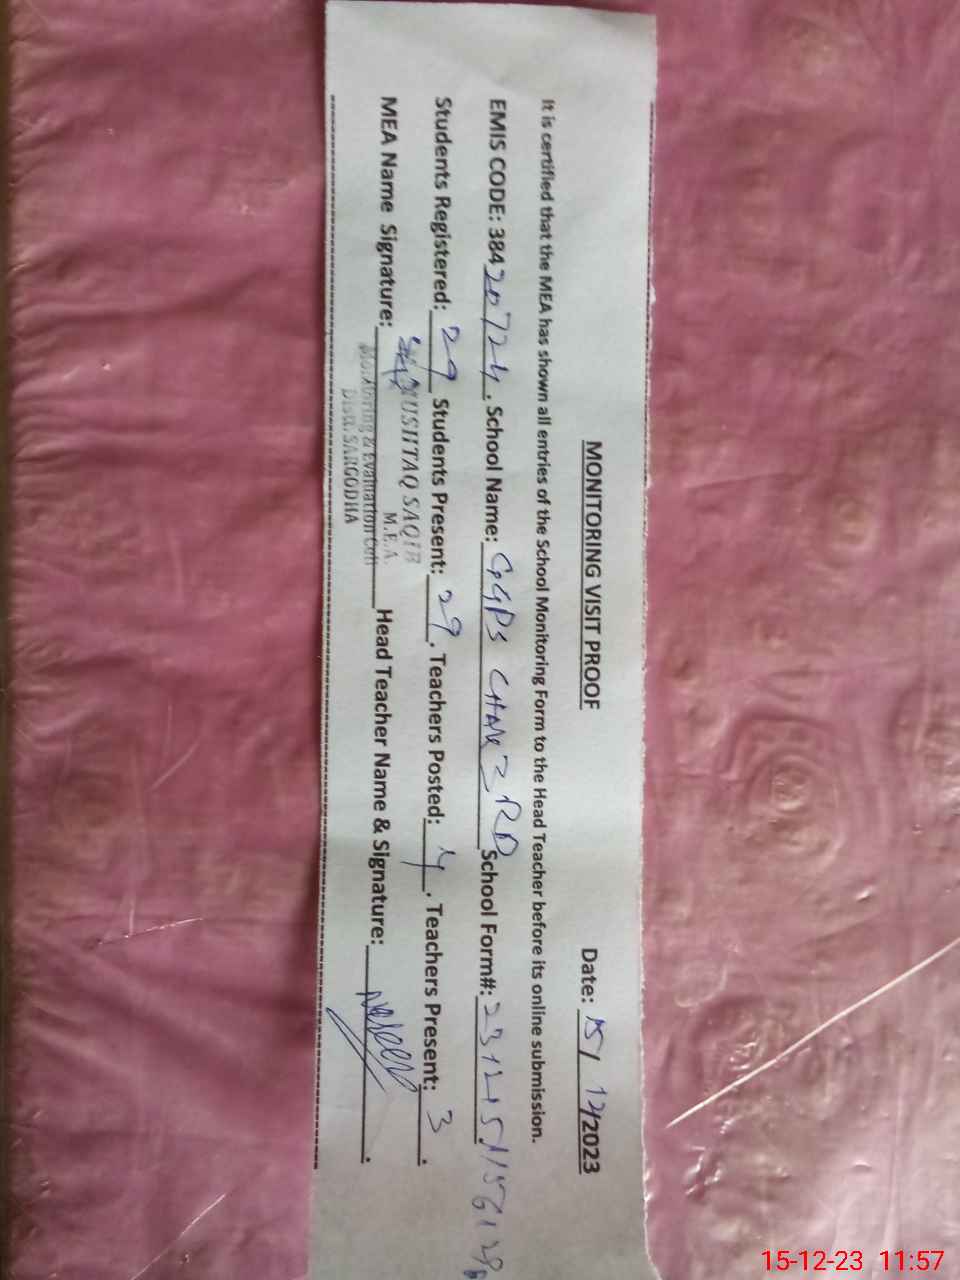 MONITORING VISIT PROOF Date: 15/ 12/2023
It is certified that the MEA has shown all entries of the School Monitoring Form to the Head Teacher before its online submission.
EMIS CODE: 38420724. School Name: GGPS CHAK 3 RD School Form#:
Students Registered: 29 Students Present: 29. Teachers Posted: 4. Teachers Present: 3.
MUSHTAQ SAQIB
MEA Name Signature: M.E.A. Head Teacher Name & Signature:
Monitoring & Evaluation Cell
Distt. SARGODHA
15-12-23 11:57